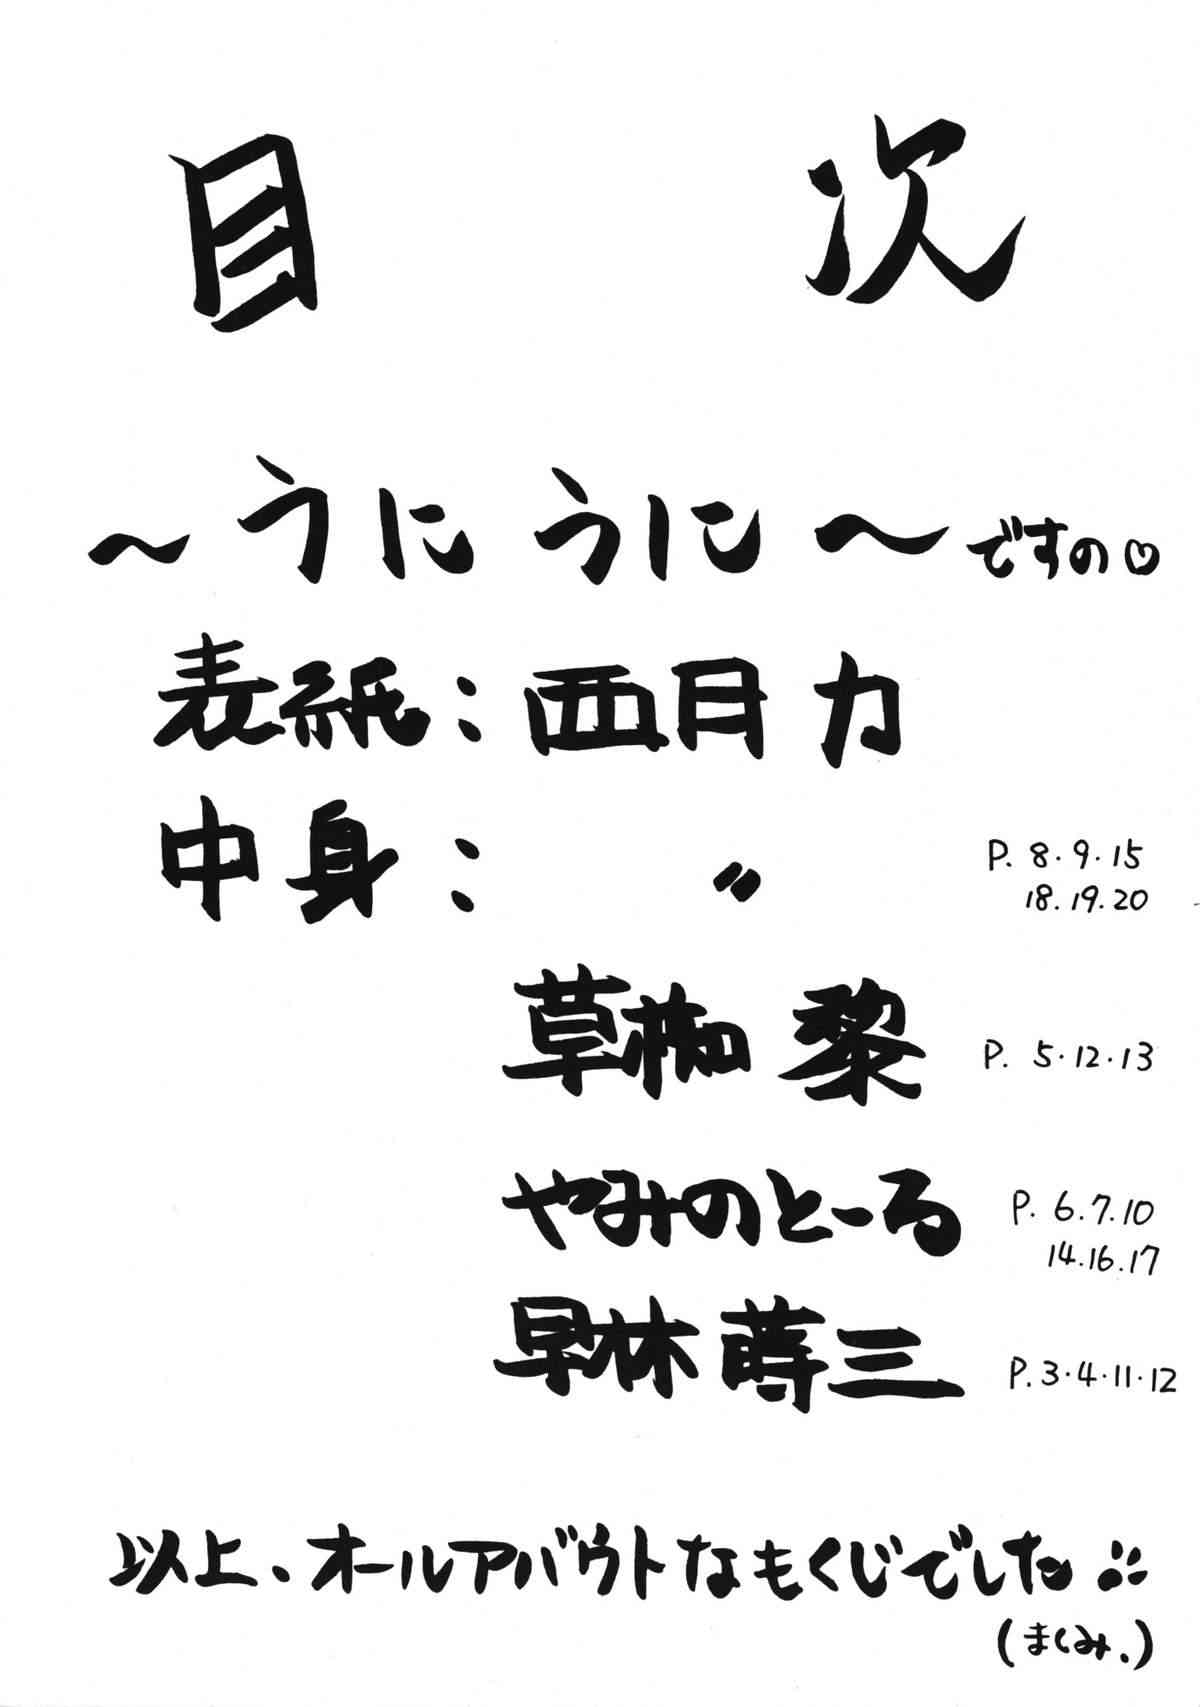 目 次
～うにうに～ですの♡
表紙:西月力
中身: 〃 P. 8・9・15
18.19.20
草枷 黎 P. 5・12・13
やみのとーる P. 6.7.10
14.16.17
早林蒔三 P.3・4・11・12
以上、オールアバウトなもくじでした
(まくみ.)